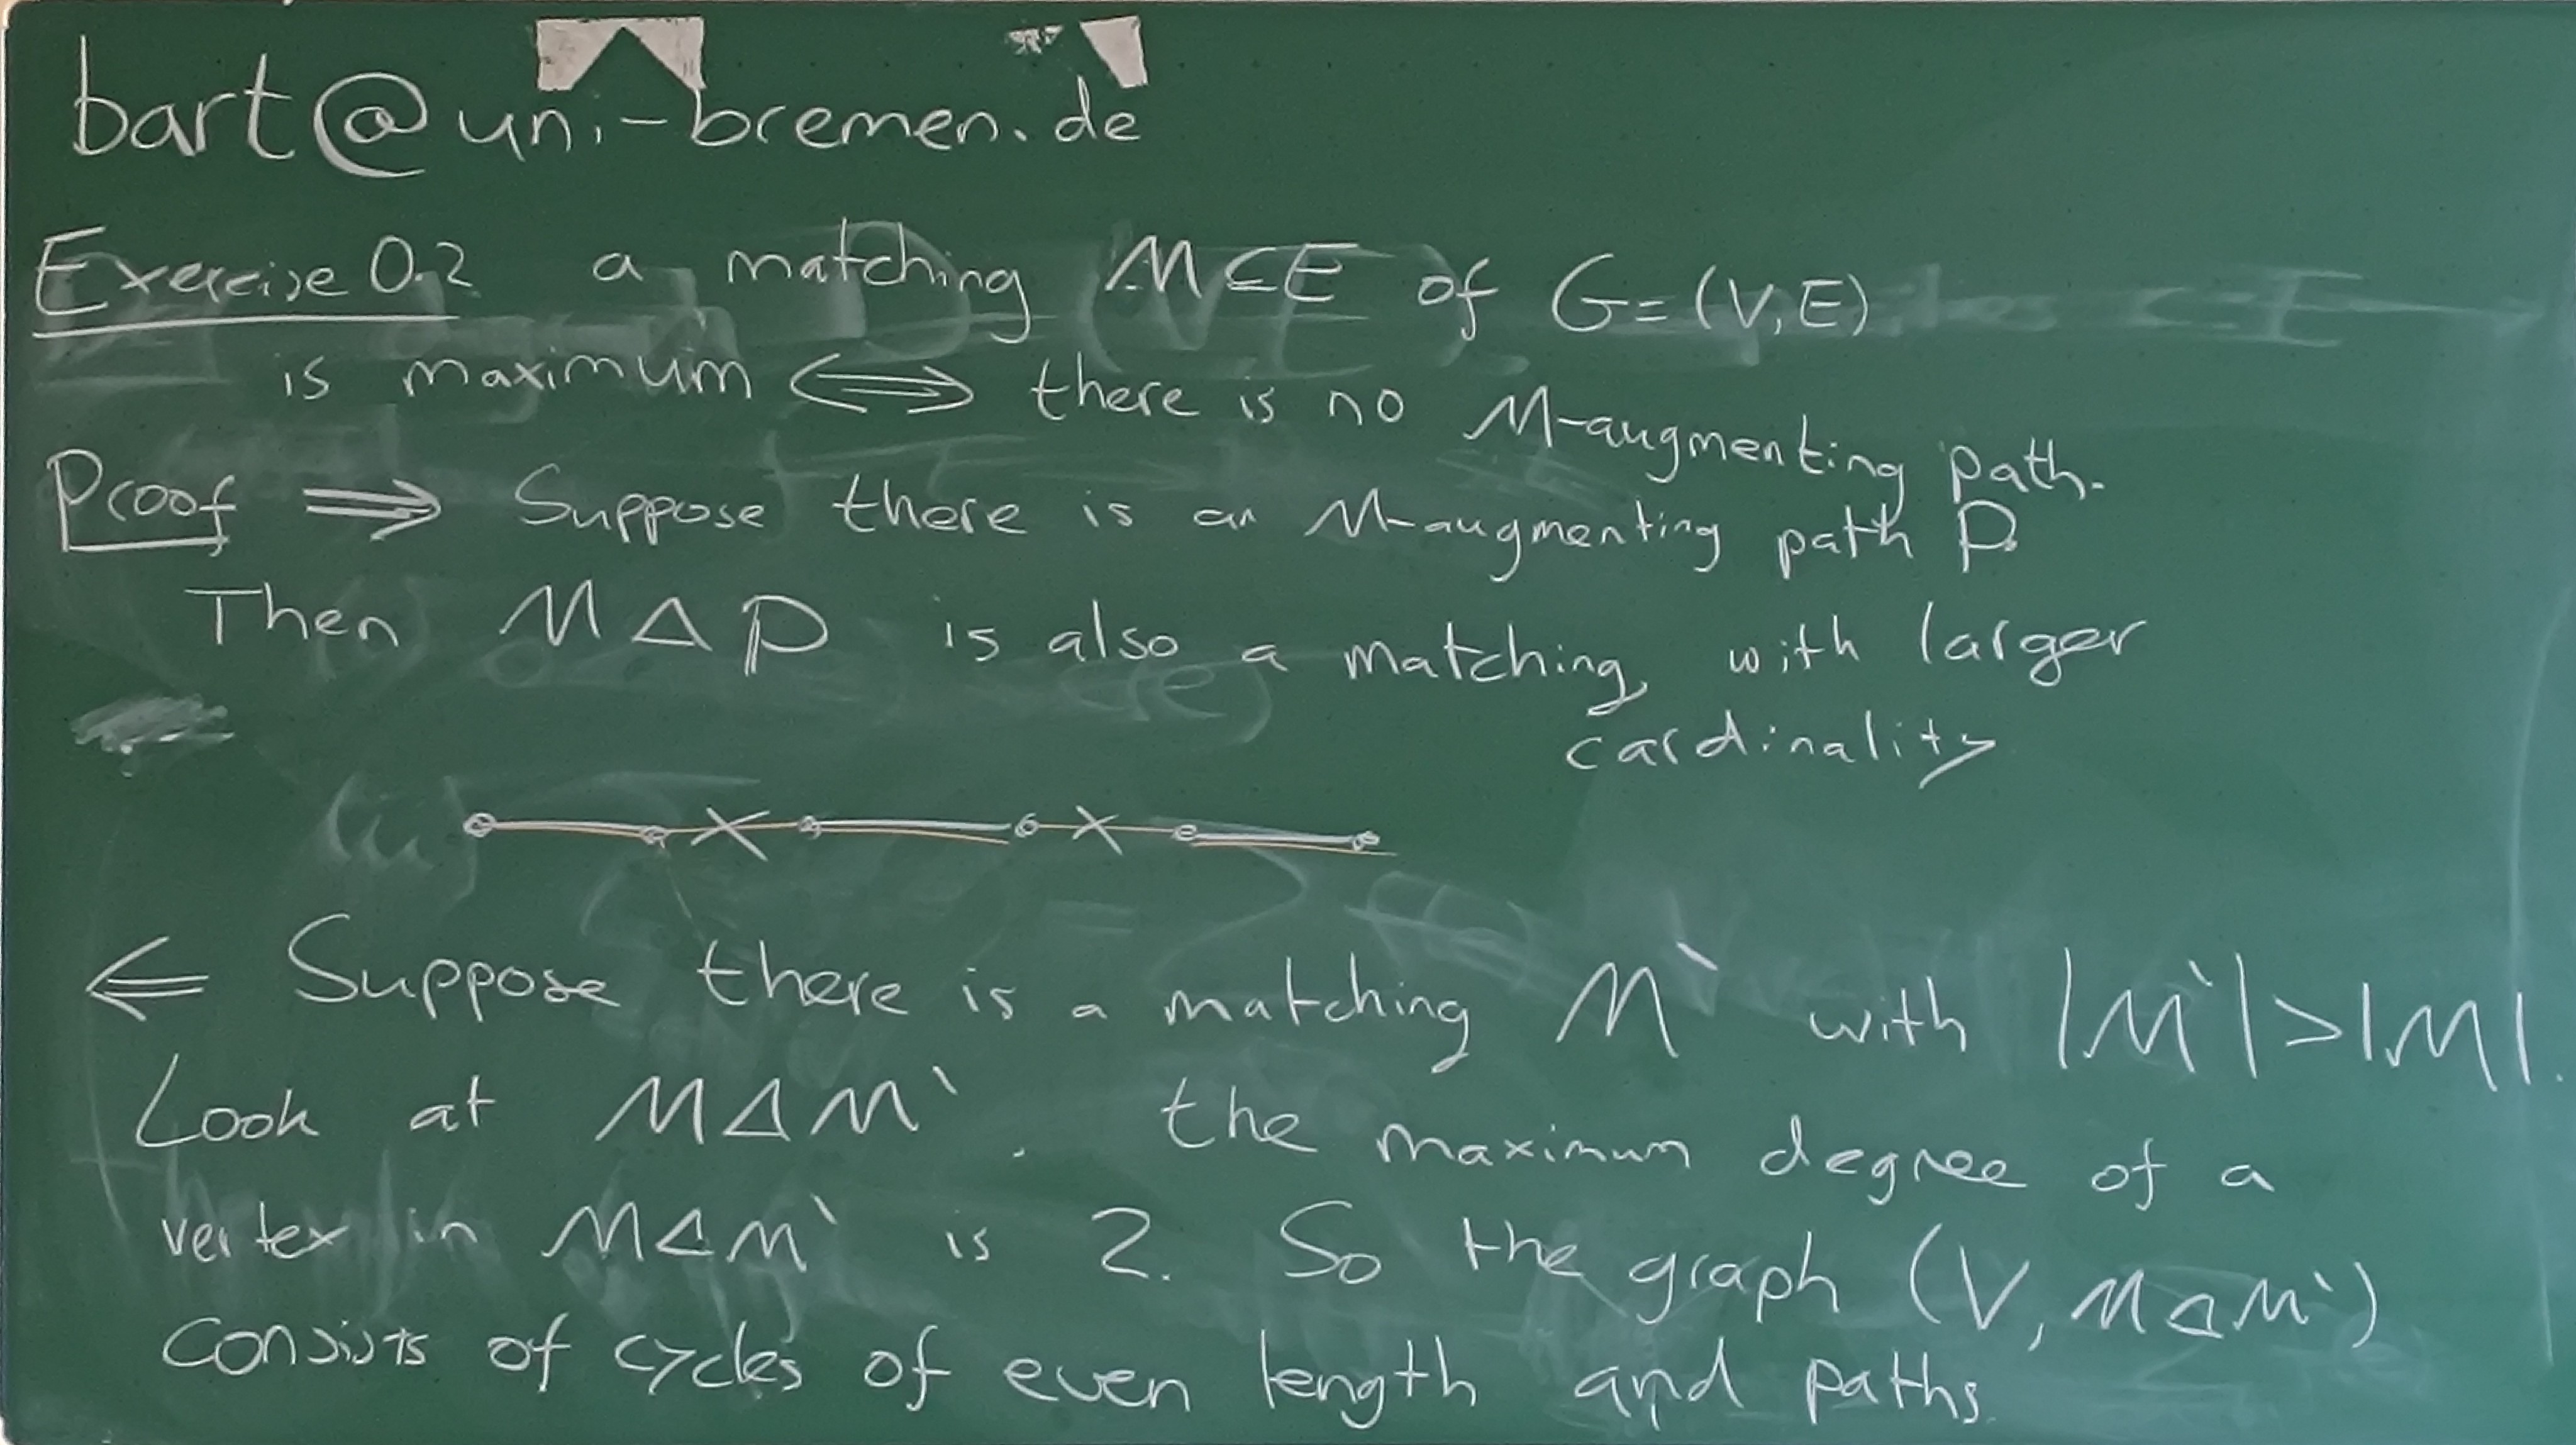 bart@uni-bremen.de
Exercise 0.2 a matching M⊆E of G=(V,E)
is maximum ⟺ there is no M-augmenting path.
Proof ⟹ Suppose there is an M-augmenting path P.
Then M △ P is also a matching, with larger
cardinality
⟸ Suppose there is a matching M` with |M`|>|M|.
Look at M△M`. the maximum degree of a
vertex in M△M` is 2. So the graph (V, M△M`)
consists of cycles of even length and paths.